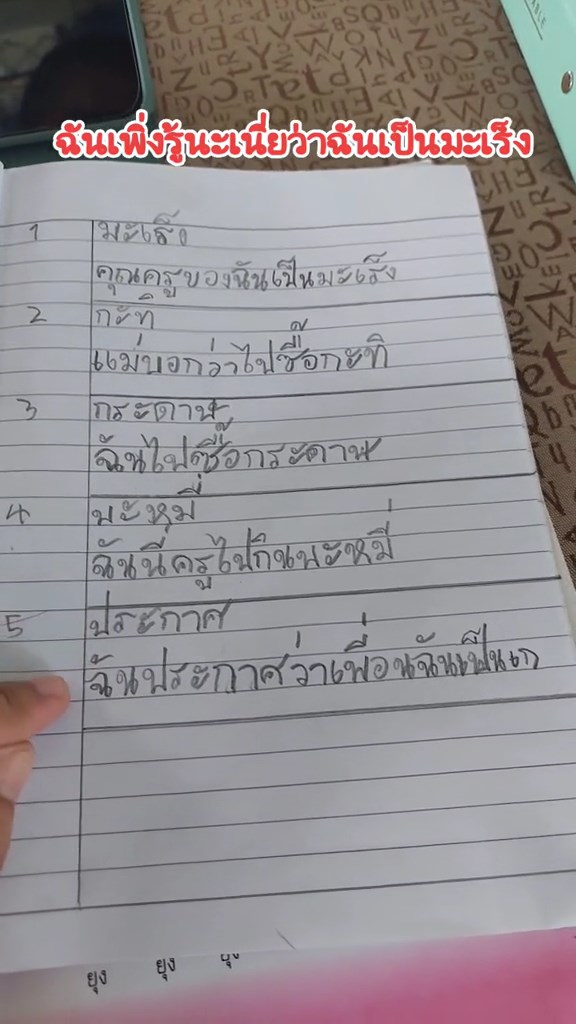 ฉันเพิ่งรู้นะเนี่ยว่าฉันเป็นมะเร็ง
1 มะเร็ง
คุณครูของฉันเป็นมะเร็ง
2 กะทิ
แม่บอกว่าไปซื้อกะทิ
3 กระดาษ
ฉันไปซื้อกระดาษ
4 บะหมี่
ฉันนี่ครูไปกินบะหมี่
5 ประกาศ
ฉันประกาศว่าเพื่อนฉันเป็นเก
ยุง ยุง ยุง